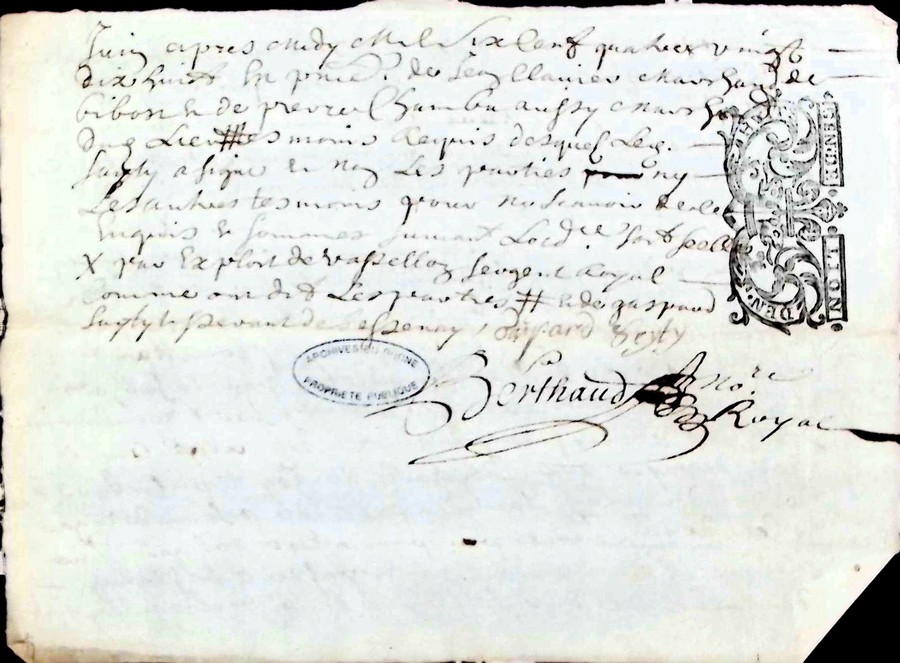 Juin apres midy mil six cent quatre vingt
dix huict En pnce. de Jean Clavier marchand de
bibost & de pierre Chambu aussy marchand
dud Lieu tesmoins Requis desquels Leq.
Seyty a signe & non Les parties ny
Les autres tesmoins pour ne scavoir de ce
Enquis & sommes suivant Lord.ce
X par Exploit de Vasselloz sergent Royal
Comme on dit Les parties # & de gaspard
Seyty de bessenay, Gaspard Seyty
Berthaud nore
Royal
ARCHIVES DU RHONE
PROPRIETE PUBLIQUE
LION